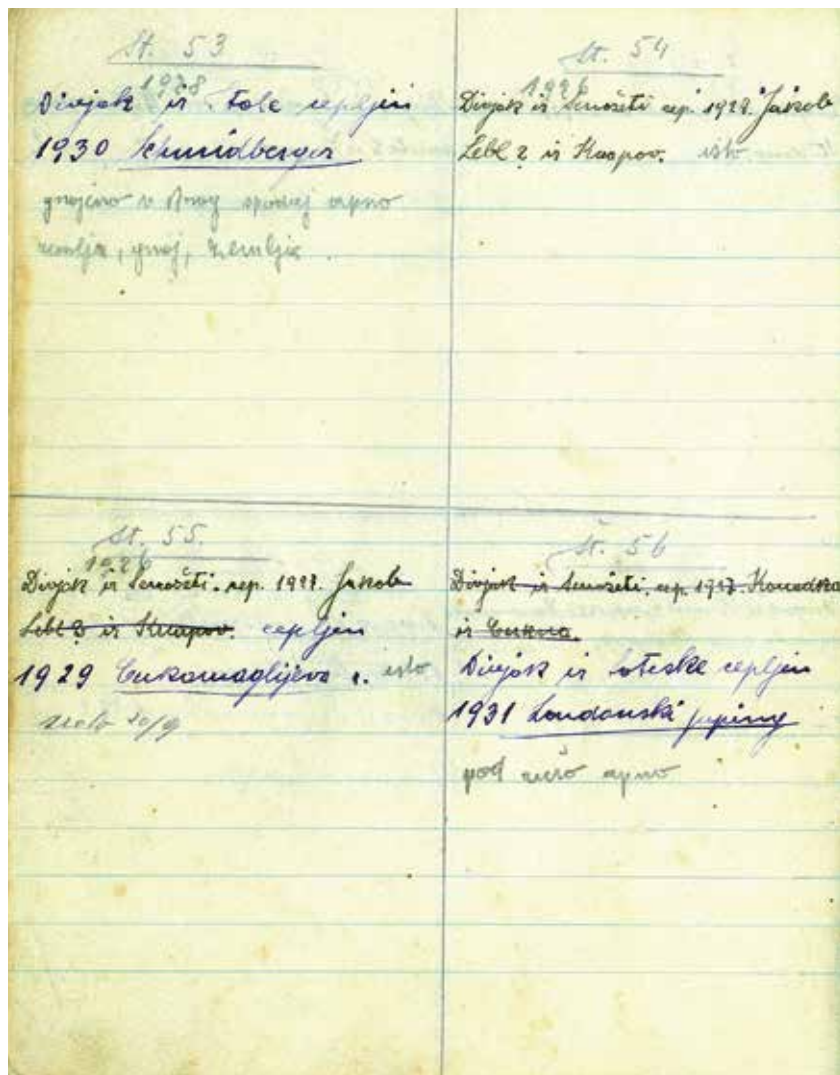 Št. 53
1928
Divjak iz Fale cepljen
1930 Schmidberger.
gnojeno v krog spodaj apno
zemlja, gnoj, zemlja.
Št. 54
1926
Divjak iz Senožeti cep. 1927. Jakob
Lebl ? iz Knapov. isto
Št. 55.
1926
Divjak iz Senožeti. cep. 1927. Jakob
Lebl ? iz Knapov. cepljen
1929 Cukamaglijeva r. isto
20/9
Št. 56
Divjak iz Senožeti, cep. 1927. Kanadka
iz
Divjak iz Loteske cepljen
1931 Londonski peping
pod apno